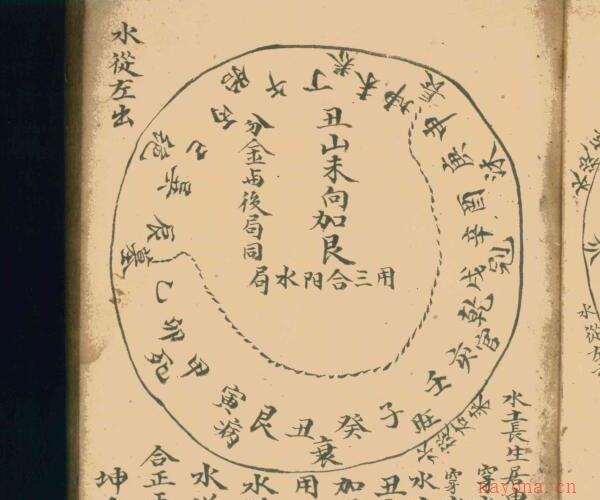 水從左出
丑山未向加艮
分金与後局同
用三合阳水局
丁
未
養
坤
長
申
庚
沐
酉
辛
冠
戌
乾
官
亥
壬
旺
子
癸
丑
衰
艮
寅
病
甲
卯
死
乙
墓
辰
巽
絶
巳
丙
胎
午
水從右來
水土長生居
穿
水
丑
加
用
水
水
合正
坤
水從左
nayona.cn